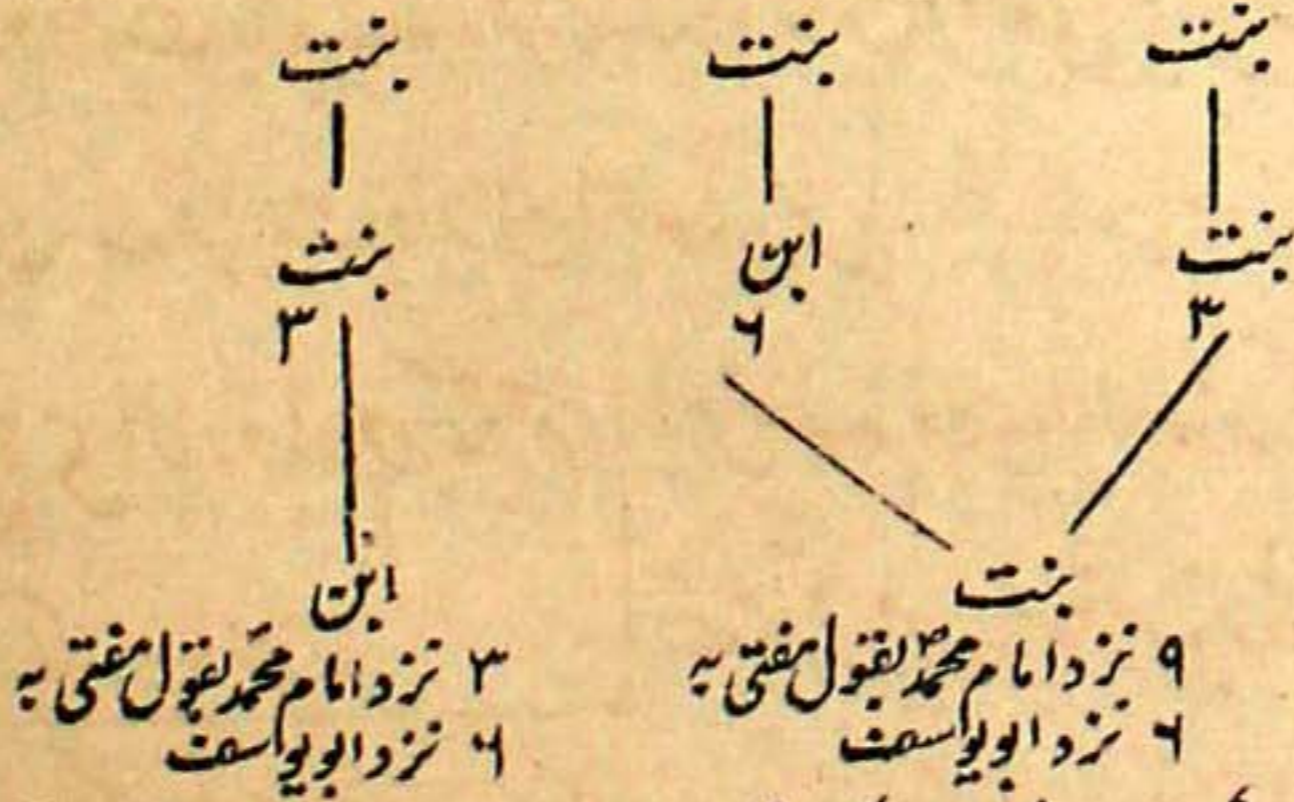 بنت بنت بنت
بنت ابن بنت
۳ ۶ ۳
بنت ابن
۹ نزد امام محمدؒ بقول مفتی به
۶ نزد ابو یوسف
۳ نزد امام محمدؒ بقول مفتی به
۶ نزد ابو یوسف